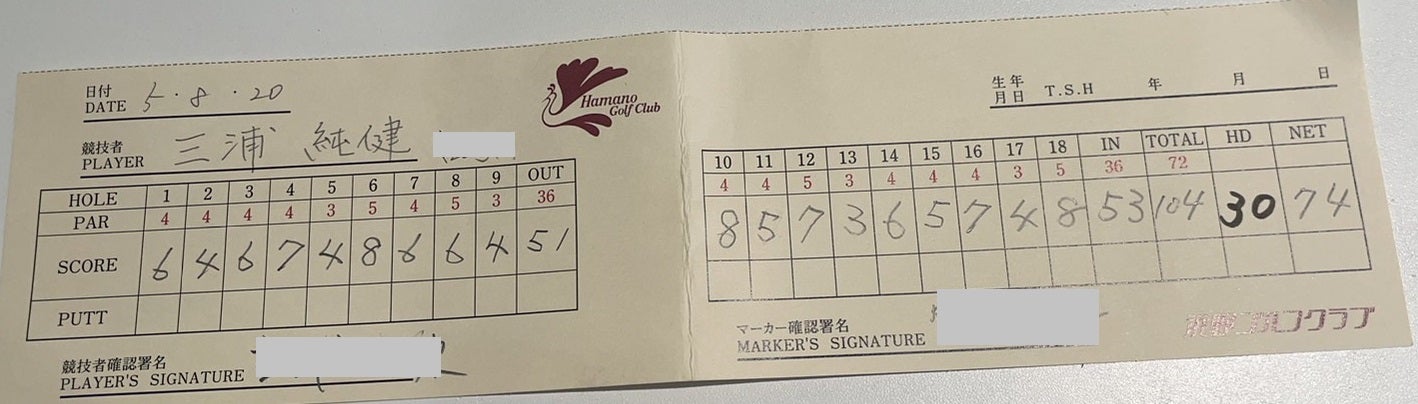 日付
DATE 5・8・20
Hamano
Golf Club
競技者
PLAYER 三浦 純健
HOLE 1 2 3 4 5 6 7 8 9 OUT
PAR 4 4 4 4 3 5 4 5 3 36
SCORE 6 4 6 7 4 8 6 6 4 51
PUTT
競技者確認署名
PLAYER'S SIGNATURE
生年
月日 T.S.H 年 月 日
10 11 12 13 14 15 16 17 18 IN TOTAL HD NET
4 4 5 3 4 4 4 3 5 36 72
8 5 7 3 6 5 7 4 8 53 104 30 74
マーカー確認署名
MARKER'S SIGNATURE
ゴルフクラブ